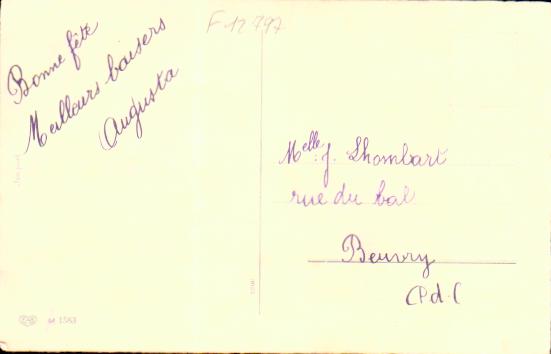 F 12 797
Bonne fête
Meilleurs baisers
Augusta
Melle. J. Lhombart
rue du bal
Beuvry
(P d. C
M 1583